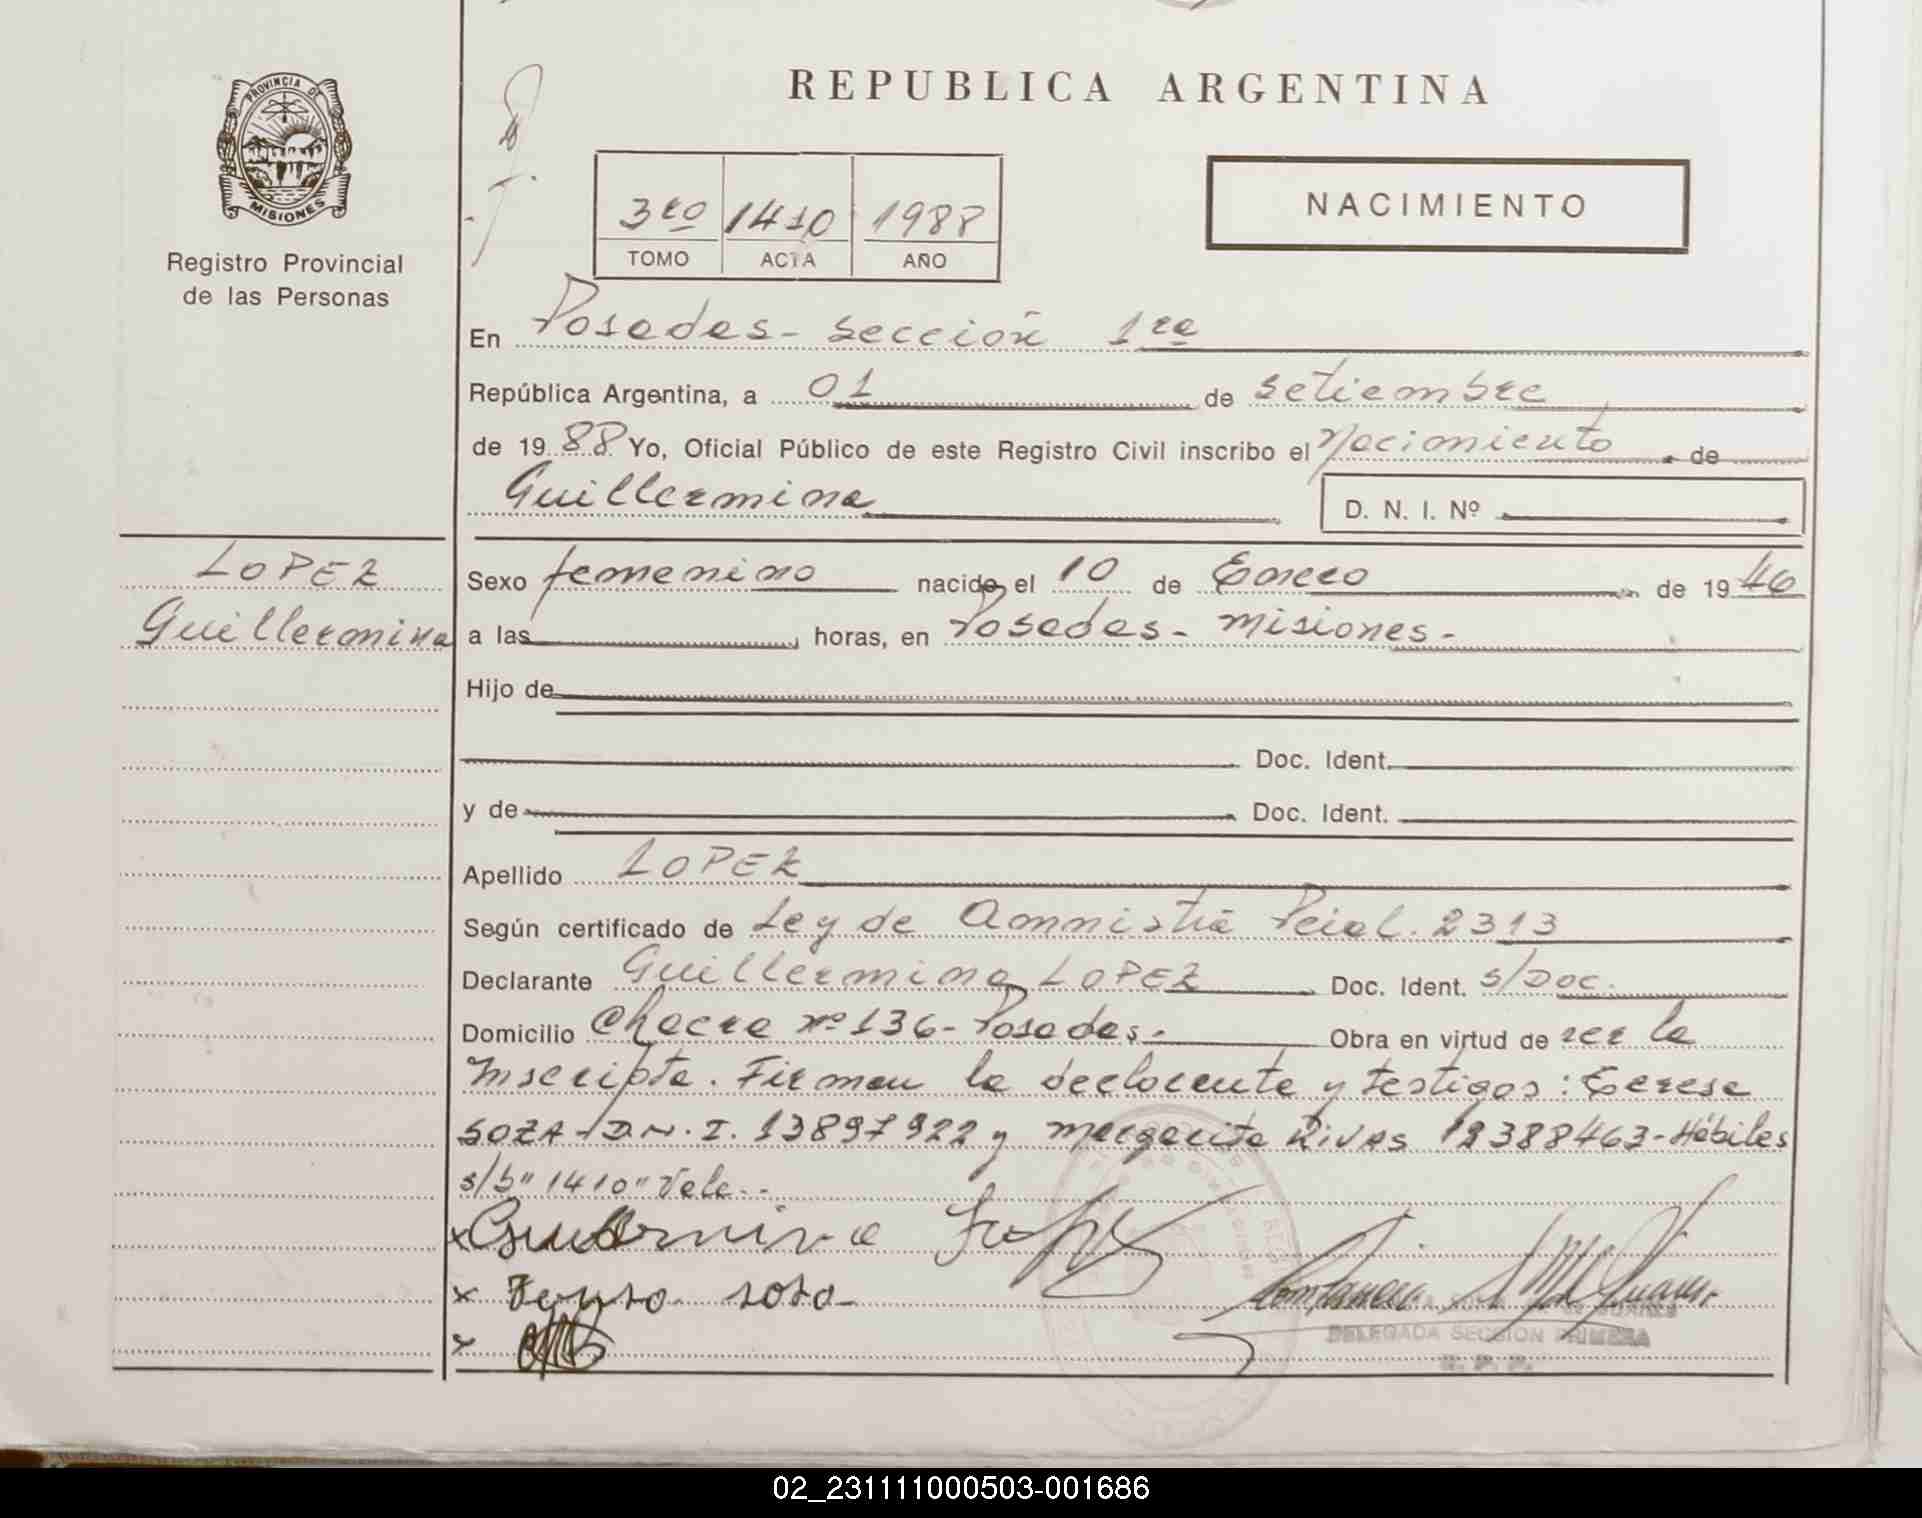 PROVINCIA DE
MISIONES
Registro Provincial
de las Personas
LOPEZ
Guillermina
REPUBLICA ARGENTINA
3ro 1410 1988
TOMO ACTA AÑO
NACIMIENTO
En Posadas - sección 1ra
República Argentina, a 01 de setiembre
de 1988 Yo, Oficial Público de este Registro Civil inscribo el Nacimiento de
Guillermina
D. N. I. Nº
Sexo femenino nacido el 10 de Enero de 1946
a las horas, en Posadas - Misiones -
Hijo de
Doc. Ident.
y de Doc. Ident.
Apellido LOPEZ
Según certificado de Ley de Amnistia Pcial. 2313
Declarante Guillermina LOPEZ Doc. Ident. s/Doc.
Domicilio Chacra nº 136 - Posadas - Obra en virtud de ser la
Inscripta. Firman la declarante y testigos: Teresa
SOZA - D.N.I. 13897922 y Margarita RIVAS 12388463 - Hábiles
s/b "1410" Vale. -
x Guillermina Lopez
x soto
x
DELEGADA SECCION PRIMERA
R. P. P.
02_231111000503-001686